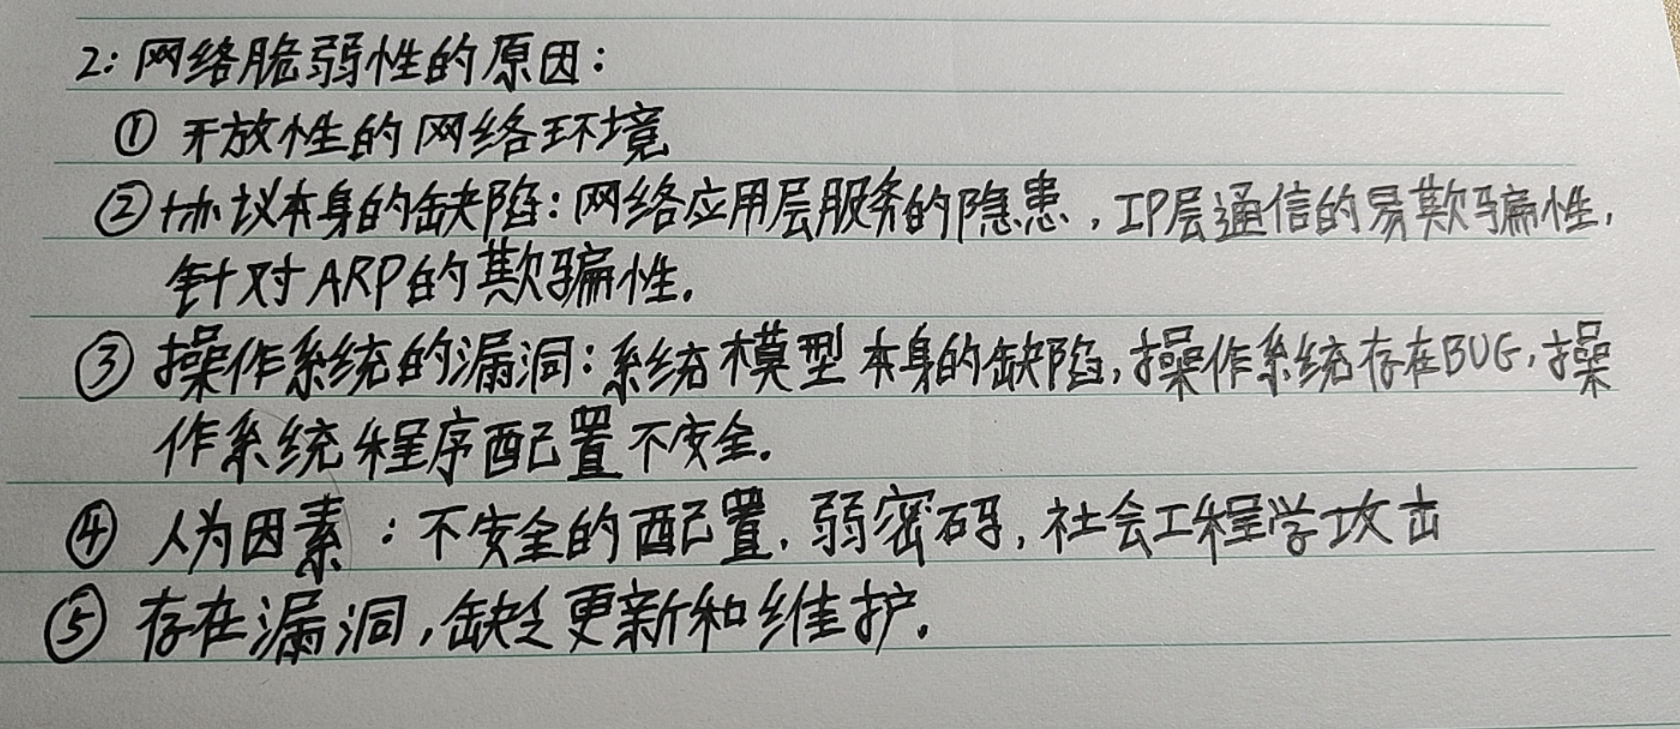 2: 网络脆弱性的原因:
① 开放性的网络环境
② 协议本身的缺陷: 网络应用层服务的隐患, IP层通信的易欺骗性,
针对ARP的欺骗性.
③ 操作系统的漏洞: 系统模型本身的缺陷, 操作系统存在BUG, 操
作系统程序配置不安全.
④ 人为因素: 不安全的配置, 弱密码, 社会工程学攻击
⑤ 存在漏洞, 缺乏更新和维护.